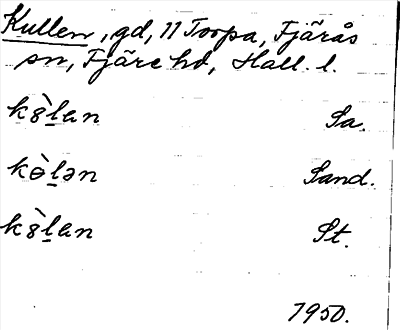 Kullen, gd, 11 Torpa, Fjärås
sn, Fjäre hd, Hall. l.
k8̀l̲an Sa.
kɵ̀l̲ən Sand.
k8̀l̲an St.
1950.